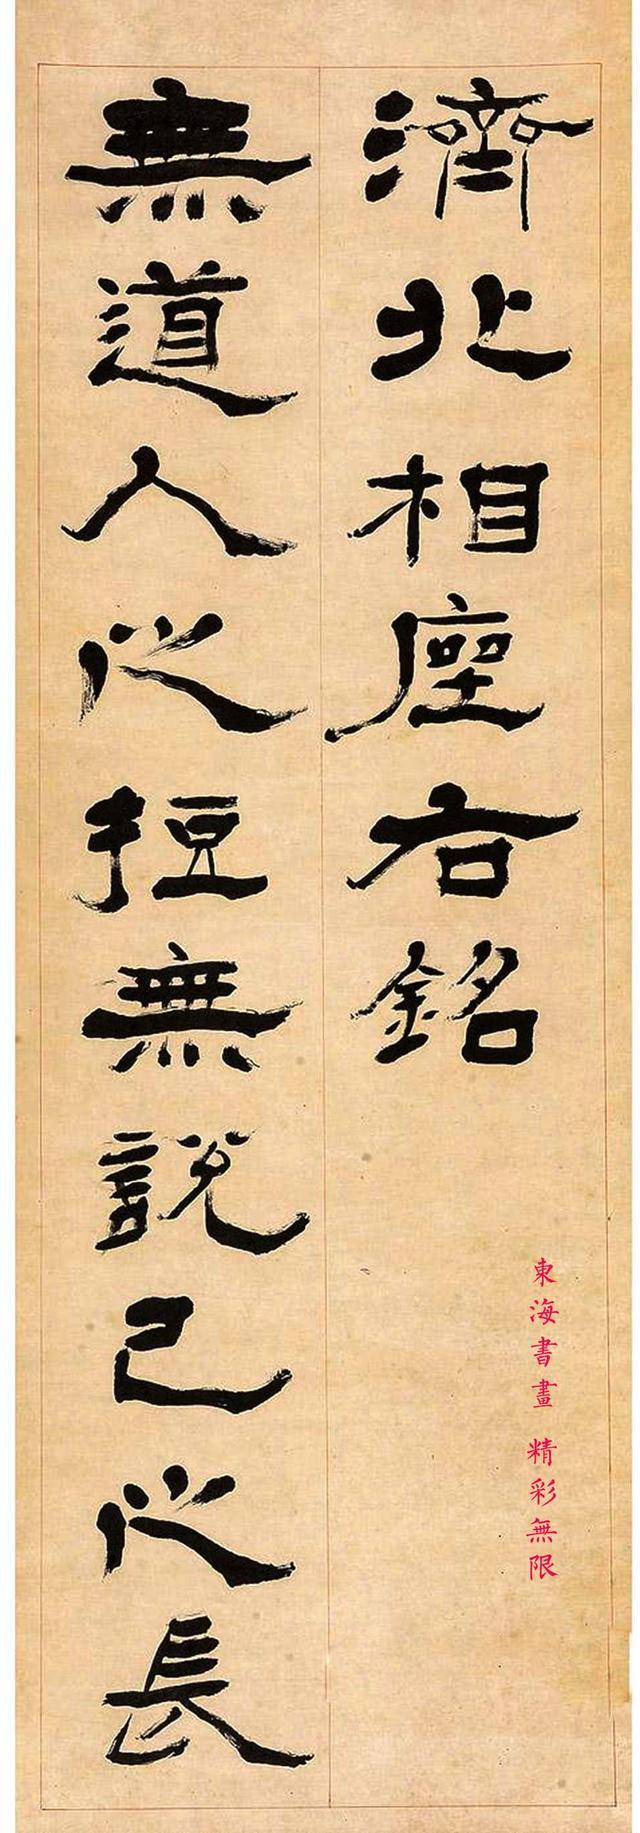 濟北相座右銘
無道人之短無說己之長
東海書畫 精彩無限